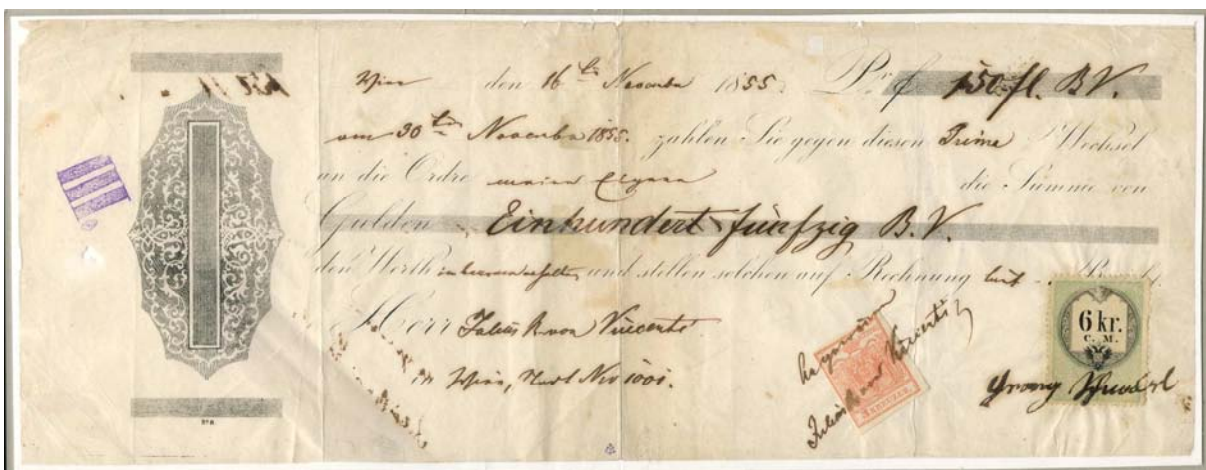 Wien den 16ten November 1855. Pr f 150 fl. B.V.
am 30ten November 1855. zahlen Sie gegen diesen Prima Wechsel
an die Ordre meiner Eigenen die Summe von
Gulden Einhundert fünfzig B.V.
den Werth und stellen solchen auf Rechnung laut
Herr Julius R von Vincenti
in Wien, Stadt Nro 1001.
Julius R von Vincenti
3 KREUZER
6 kr.
C. M.
Georg